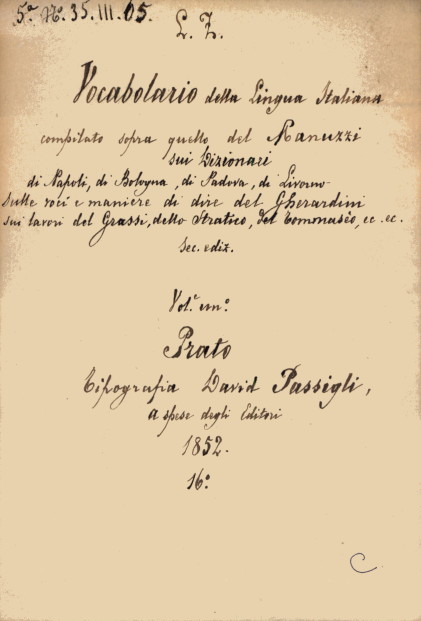 5.ª N.º 35.III.05.
L. Z.
Vocabolario della Lingua Italiana
compilato sopra quello del Manuzzi
sui Dizionari
di Napoli, di Bologna, di Padova, di Livorno
sulle voci e maniere di dire del Gherardini
sui lavori del Grassi, dello Stratico, del Tommaséo, ec. ec.
Sec. ediz.
Vol.e un.º
Prato
Tipografia David Passigli,
a spese degli Editori
1852.
16.º
C